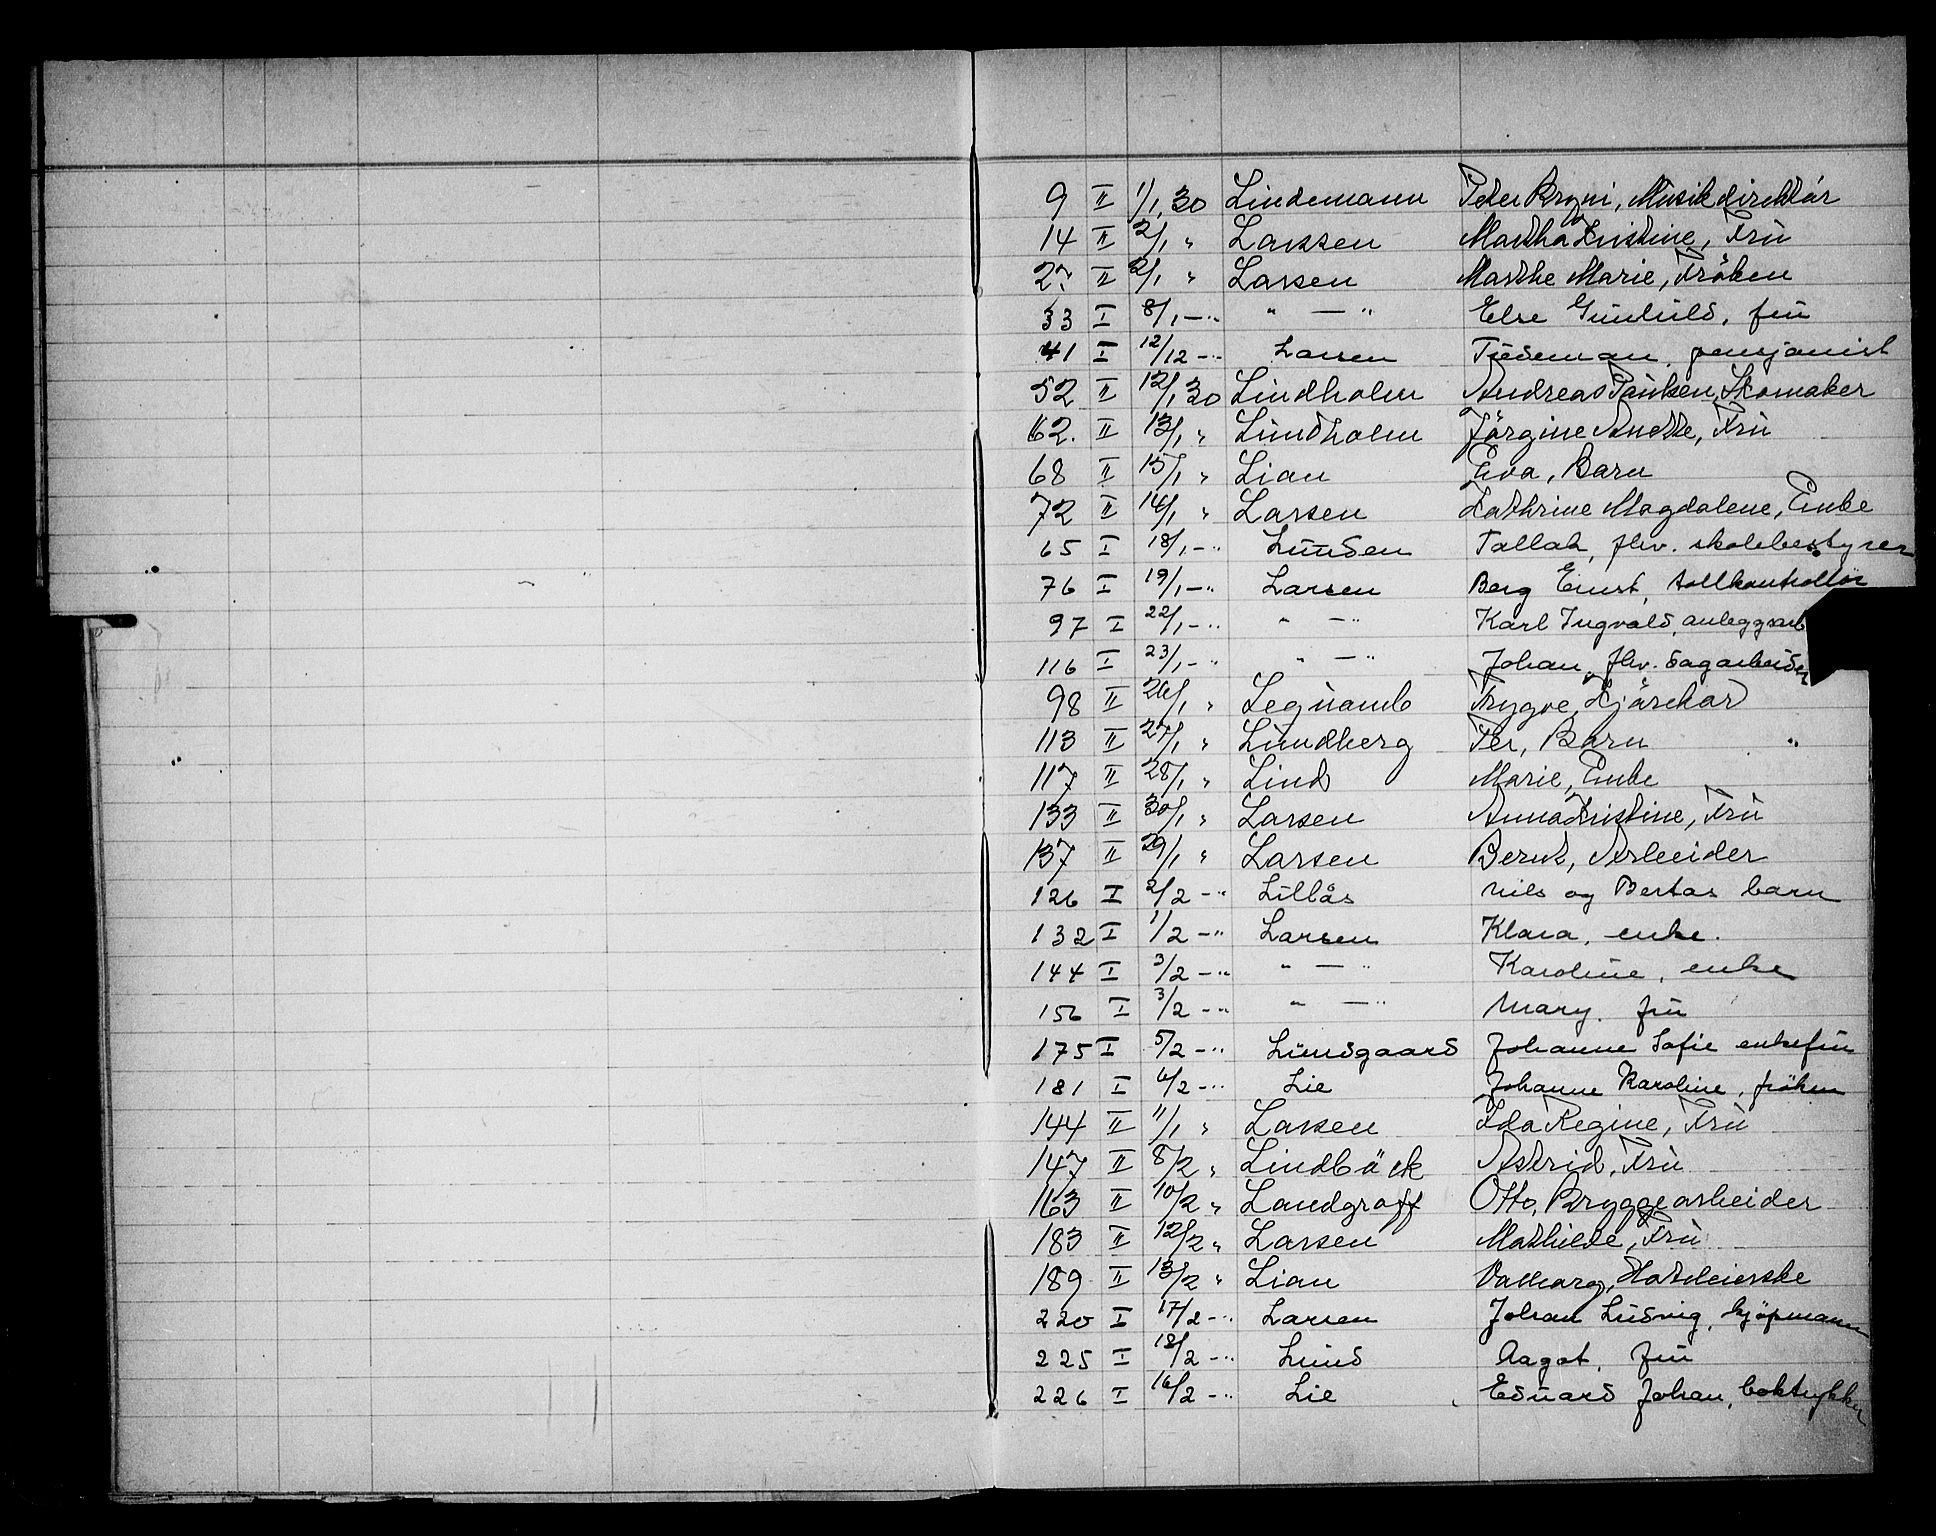 9 II 1/1 30 Lindemann Peter Bryni, Musikdirektör
14 II 2/1 " Larssen Martha Kristine, Frü
27. II 2/1 " Larsen Marthe Marie, Fröken
33 I 8/1 -" " — " Else Günhild, frü
41 I 12/12 -" Larsen Tideman, pensjonist
52 II 12/1 30 Lindholm Andreas Paülsen, Skomaker
62. II 13/1 " Lündholm Jörgine Anette, Frü
68 II 15/1 " Lian Eva, Barn
72 II 14/1 " Larsen Kathrine Magdalene, Enke
65 I 18/1 -" Lünden Tallak, fhv. skolebestyrer
76 I 19/1 -" Larsen Berg Ernst, tollkontrollör
97 I 22/1 -" " — " Karl Ingvald, anleggsarb
116 I 23/1 -" " — " Johan, fhv. sagarbeider
98 II 26/1 " Legüamb Trygve, Kjörekar
113 II 27/1 " Lündberg Per, Barn "
117 II 28/1 " Lind Marie, Enke
133 II 30/1 " Larsen Anna Kristine, Frü
137 II 29/1 " Larsen Bernt, Arbeider
126 I 2/2 -" Lillås Nils og Bertas barn
132 I 1/2 -" Larsen Klara, enke.
144 I 3/2 -" " — " Karoline, enke
156 I 3/2 -" " — " Mary. frü
175 I 5/2 -" Lündgaard Johanne Sofie enkefrü
181 I 6/2 -" Lie Johanne Karoline, fröken
144 II 11/1 " Larsen Ida Regine, Frü
147 II 8/2 " Lindbäck Astrid, Frü
163 II 10/2 " Landgraff Otto, Bryggearbeider
183 II 12/2 " Larsen Mathilde, Frü
189 II 13/2 " Lian Valborg, Hateierske
220 I 17/2 -" Larsen Johan Lüdvig, kjöpmann
225 I 18/2 -" Lünd Aagot, frü
226 I 16/2 -" Lie Edüard Johan, boktrykker